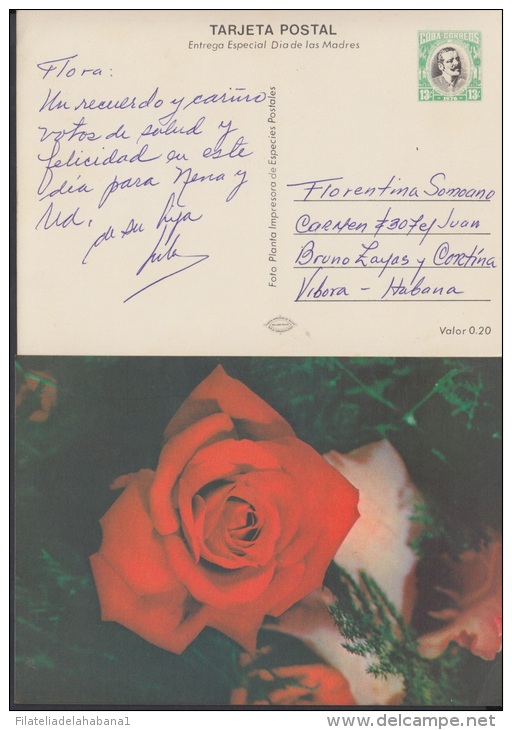 TARJETA POSTAL
Entrega Especial Dia de las Madres
CUBA·CORREOS
13¢ 13¢
Flora:
Un recuerdo y cariño
votos de salud y
felicidad en este
día para Nena y
Ud.
de su hija
Foto Planta Impresora de Especies Postales
Florentina Somoano
Carmen #307 e/ Juan
Bruno Zayas y Cortina
Vibora - Habana
Valor 0.20
Filateliadelahabana1
www.delcampe.net